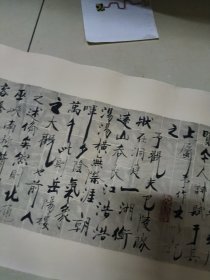 人詩賦于
上屬予作文以
之
予觀夫巴陵勝
狀在洞庭一湖銜
遠山吞長江浩浩
湯湯橫無際涯朝
暉夕陰氣象
萬千此則岳陽樓
之大觀也前人
之述備矣然則北通
巫峽南極